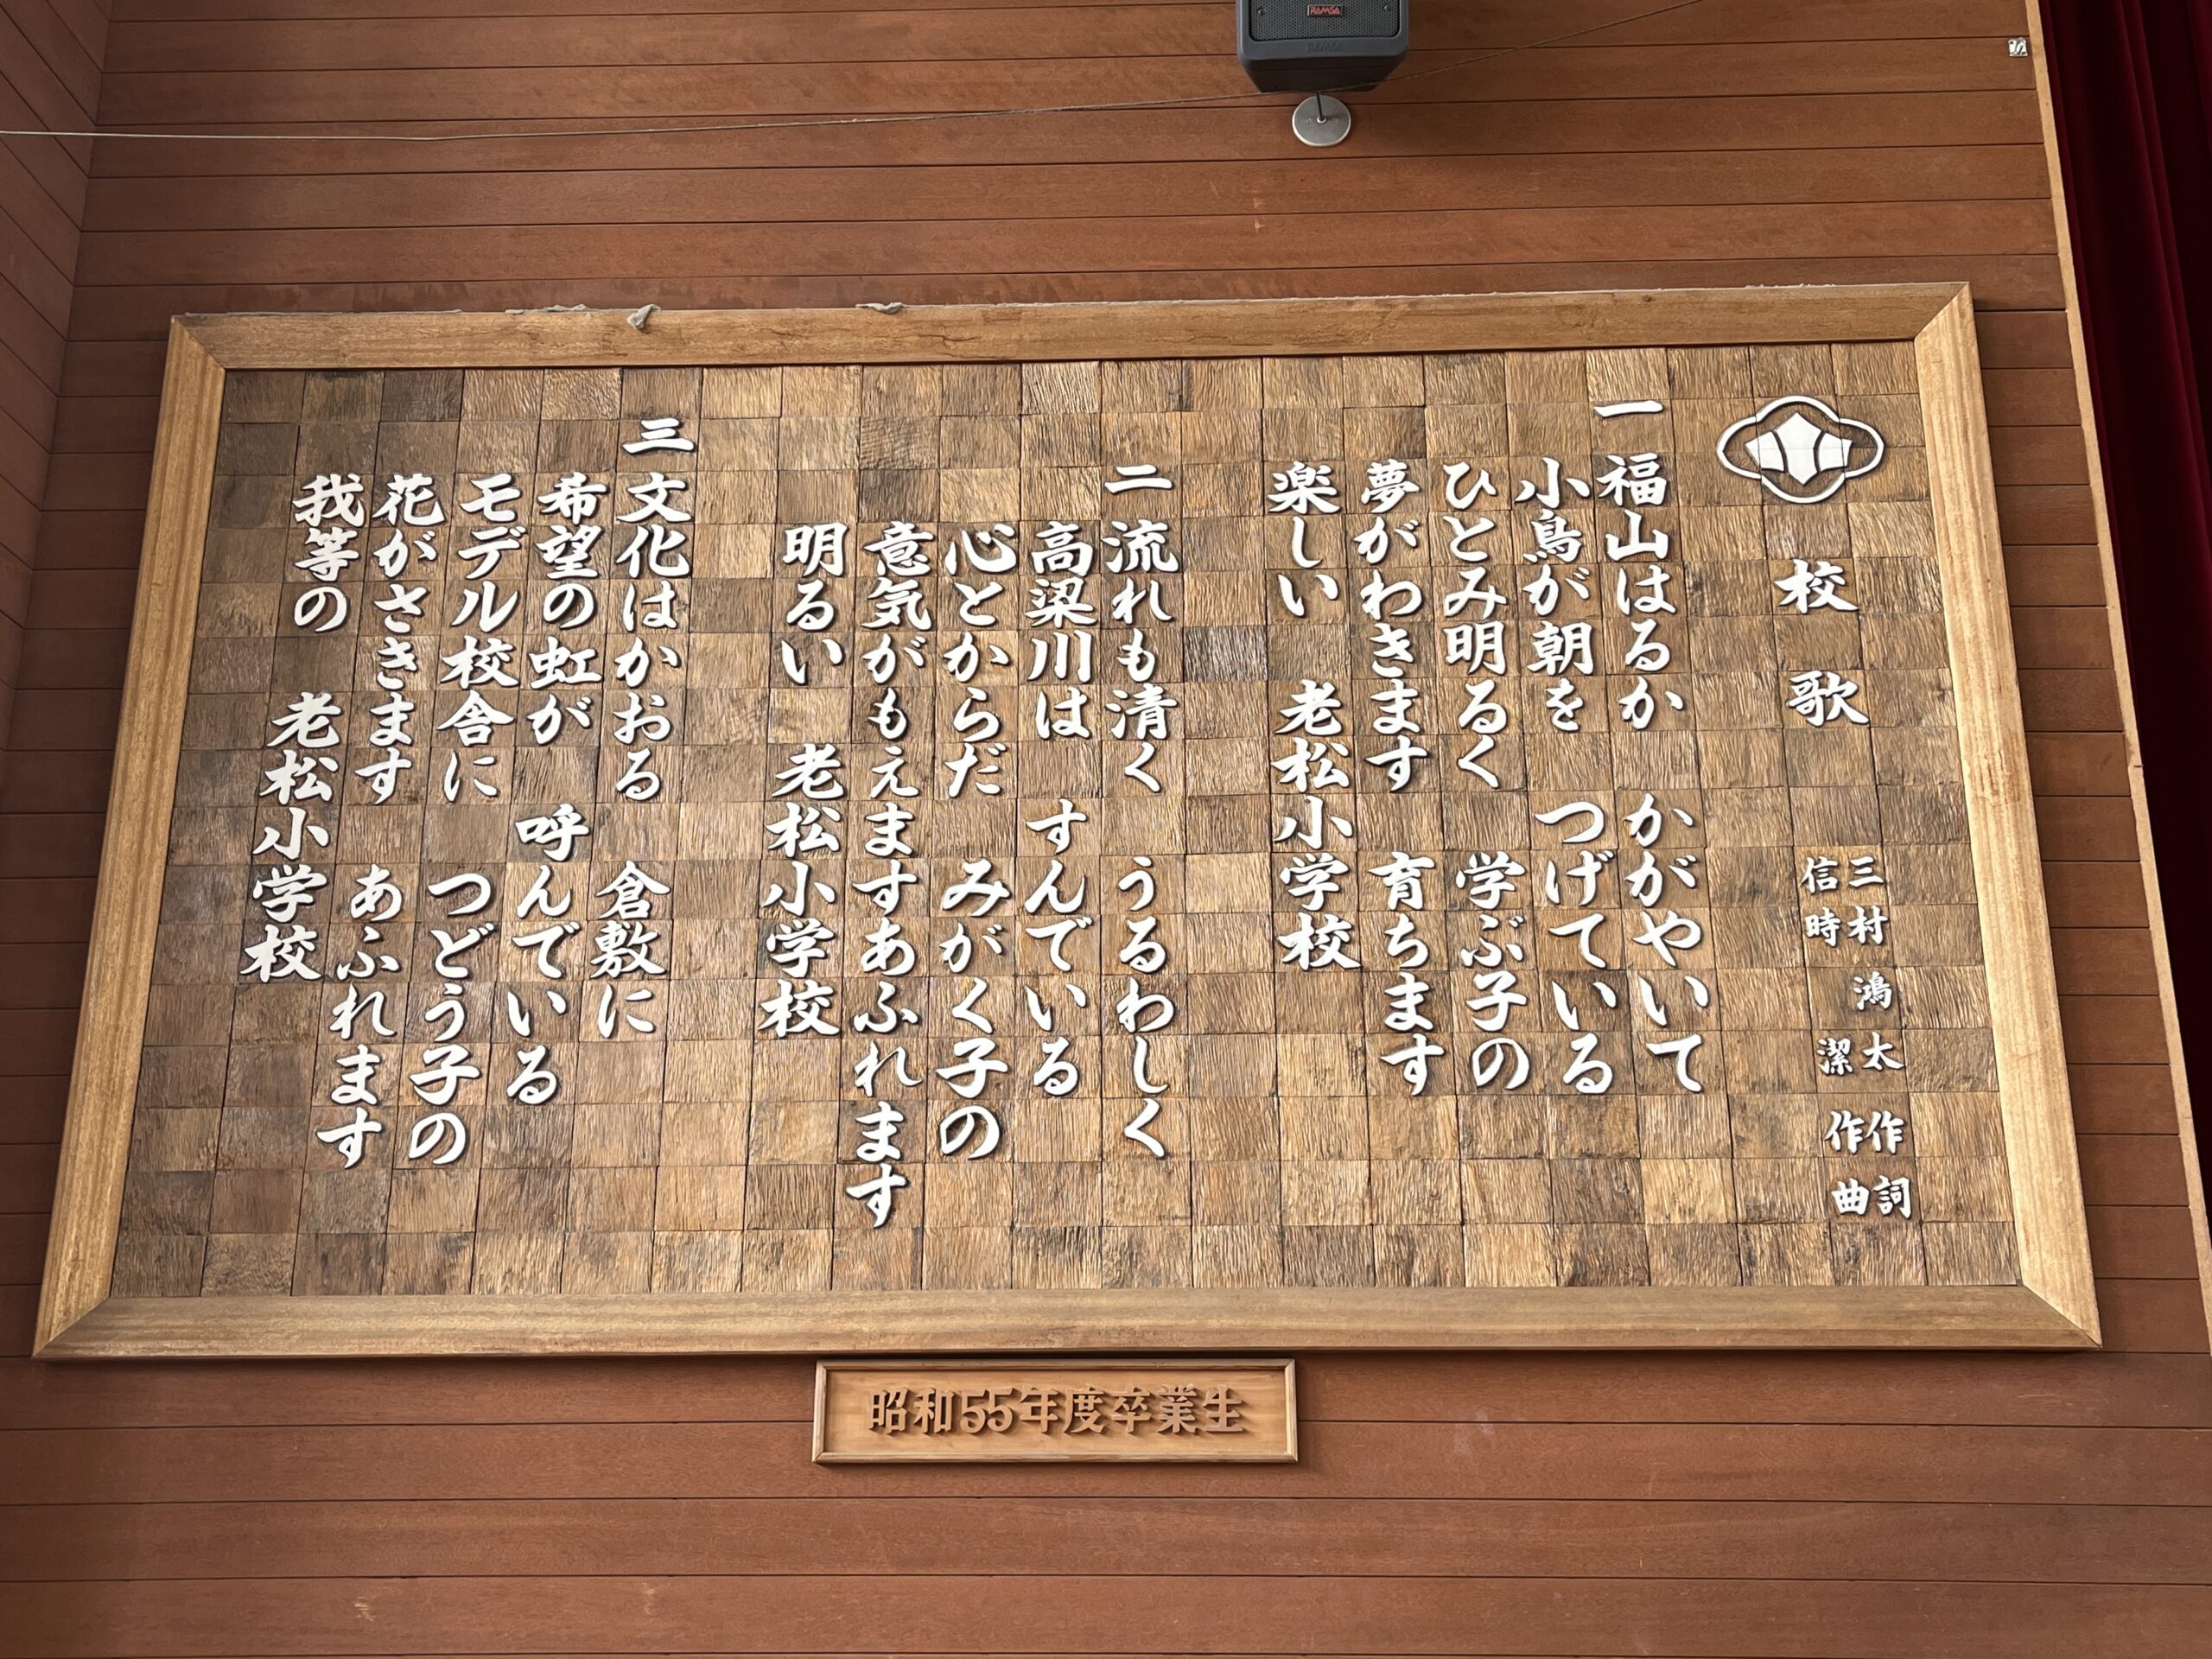 RAMSA
校歌
三村鴻太 作詞
信時潔 作曲
一 福山はるか かがやいて
小鳥が朝を つげている
ひとみ明るく 学ぶ子の
夢がわきます 育ちます
楽しい 老松小学校
二 流れも清く うるわしく
高梁川は すんでいる
心とからだ みがく子の
意気がもえますあふれます
明るい 老松小学校
三 文化はかおる 倉敷に
希望の虹が 呼んでいる
モデル校舎に つどう子の
花がさきます あふれます
我等の 老松小学校
昭和55年度卒業生